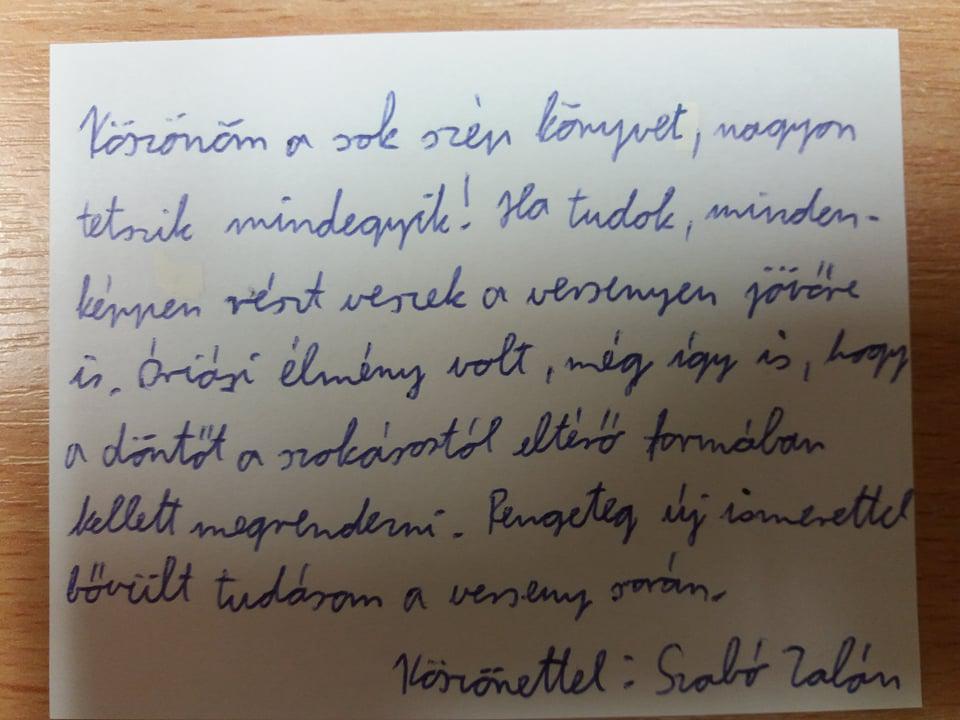 Köszönöm a sok szép könyvet, nagyon
tetszik mindegyik! Ha tudok, minden-
képpen részt veszek a versenyen jövőre
is. Óriási élmény volt, még így is, hogy
a döntőt a szokásostól eltérő formában
kellett megrendezni. Rengeteg új ismerettel
bővült tudásom a verseny során.
Köszönettel: Szabó Zalán